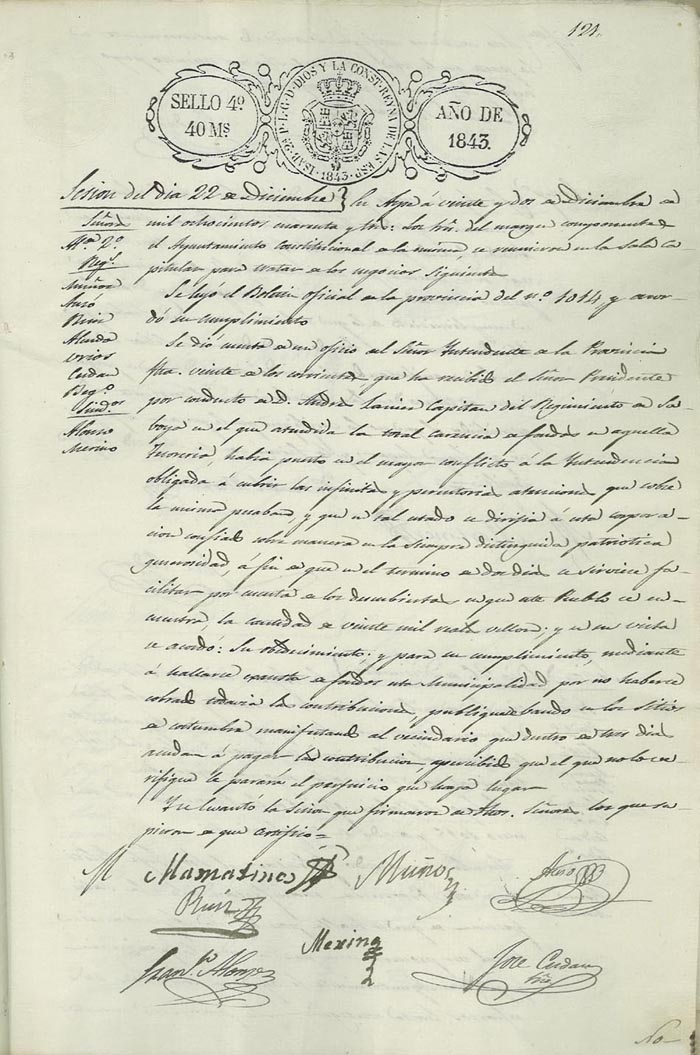 121.
SELLO 4º
40 Ms
ISAB. 2ª P. L. G. D. DIOS Y LA CONST. REYNA DE LAS ESP.
1843
AÑO DE
1843.
Sesion del dia 22 de Diciembre } En Aspe a veinte y dos de Diciembre de
mil ochocientos cuarenta y tres: Los Sres. del margen componentes
el Ayuntamiento Constitucional de la misma, se reunieron en la Sala Ca
pitular para tratar de los negocios siguientes
Señores
2º
Regs.
Muñoz
Ruiz
Cerdan
Sindos
Alonso
Merino
Se leyó el Boletin oficial de la provincia del nº 1014 y acor
dó su cumplimiento
Se dió cuenta de un oficio del Señor Yntendente de la Provincia
fha. veinte de los corrientes que ha recibido el Señor Presidente
por conducto de D. Andres Capitan del Regimiento de Sa
boya en el que atendida la total carencia de fondos en aquella
Tesoreria, habia puesto en el mayor conflicto á la Yntendencia
obligada á cubrir las infinitas y perentorias atenciones que sobre
la misma pesaban, y que en tal estado se dirigia á esta corpora
cion confiado sobre manera en la siempre distinguida patriotica
generosidad, á fin de que en el termino de dos dias se sirviese fa
cilitar por cuenta de los descubiertos en que este Pueblo se en
cuentra, la cantidad de veinte mil reales vellon; y en su vista
se acordó: Su obedecimiento; y para su cumplimiento, mediante
á hallarse exausta de fondos esta Municipalidad por no haberse
cobrado todavia las contribuciones, publiquese bando en los Sitios
de costumbre manifestando al vecindario que dentro de tres dias
acudan á pagar las contribuciones apercibidos que el que no lo ve
rifique le parará el perjuicio que haya lugar
Y se levantó la Sesion que firmaron de dhos. Señores los que su
pieron de que certifico=
Muñoz
Ruiz
Merino
Franco. Alonso
Jose Cerdan
Srio